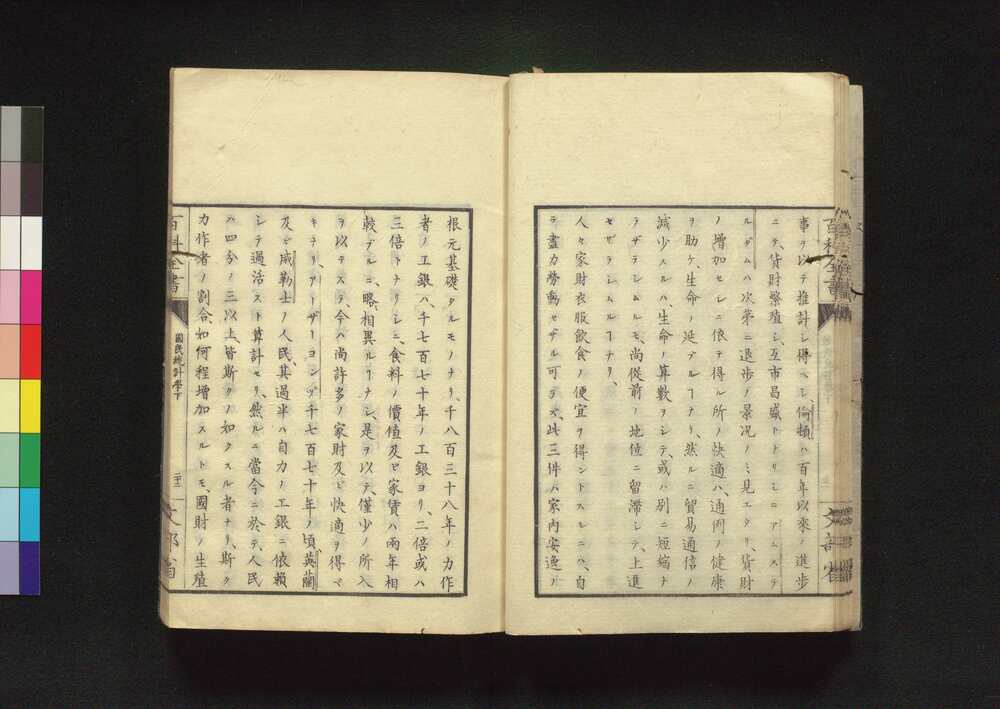 事ヲ以テ推計シ得ベシ、倫頓ハ百年以來ノ進歩
ニテ、貨財繁殖シ、互市昌盛トナリシニアムステ
ルダムハ次第ニ退歩ノ景況ノミ見エタリ、貨財
ノ増加セシニ依テ得ル所ノ快適ハ、通例ノ健康
ヲ助ケ、生命ノ延ブルヿナリ、然ルニ貿易通信ノ
減少スルハ、生命ノ算數ヲシテ、或ハ別ニ短縮ナ
ラザラシムルモ、尚從前ノ地位ニ留滞シテ、上進
セザラシムルヿナリ、
人々家財衣服飲食ノ便宜ヲ得ントスレニハ、自
ラ盡力勞働セザル可ラズ、此三件ハ家内安逸ノ
根元基礎タルモノナリ、千八百三十八年ノ力作
者ノ工銀ハ、千七百七十年ノ工銀ヨリ、二倍或ハ
三倍トナリシニ、食料ノ價値及ビ家賃ハ兩年相
較ブルニ、略、相異ルヿナシ、是ヲ以テ、僅少ノ所入
ヲ以テスラ、今ハ尚許多ノ家財及ビ快適ヲ得ベ
キナリ、アーサーヨング千七百七十年ノ頃、英蘭
及ビ威勒士ノ人民、其過半ハ自力ノ工銀ニ依頼
シテ過活スト算計セリ、然ルニ當今ニ於テ、人民
ハ四分ノ三以上、皆斯クノ如クスル者ナリ、斯ク
力作者ノ割合、如何程増加スルトモ、國財ノ生殖
百科全書 國民統計學下 文部省